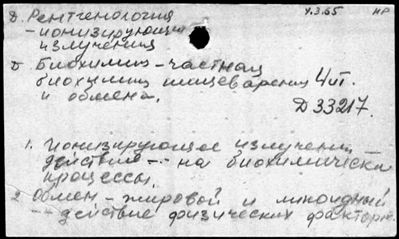 д. Рентгенология 4.3.65 НР
- ионизирующие
излучения
б. Биохимия - частная
биохимия пищеварения 4 ит.
и обмена.
Д 33217.
1. Ионизирующее излучение
действие -- на биохимически
процессы.
2. Обмен - жировой и липоидный
-- действие физических факторов.